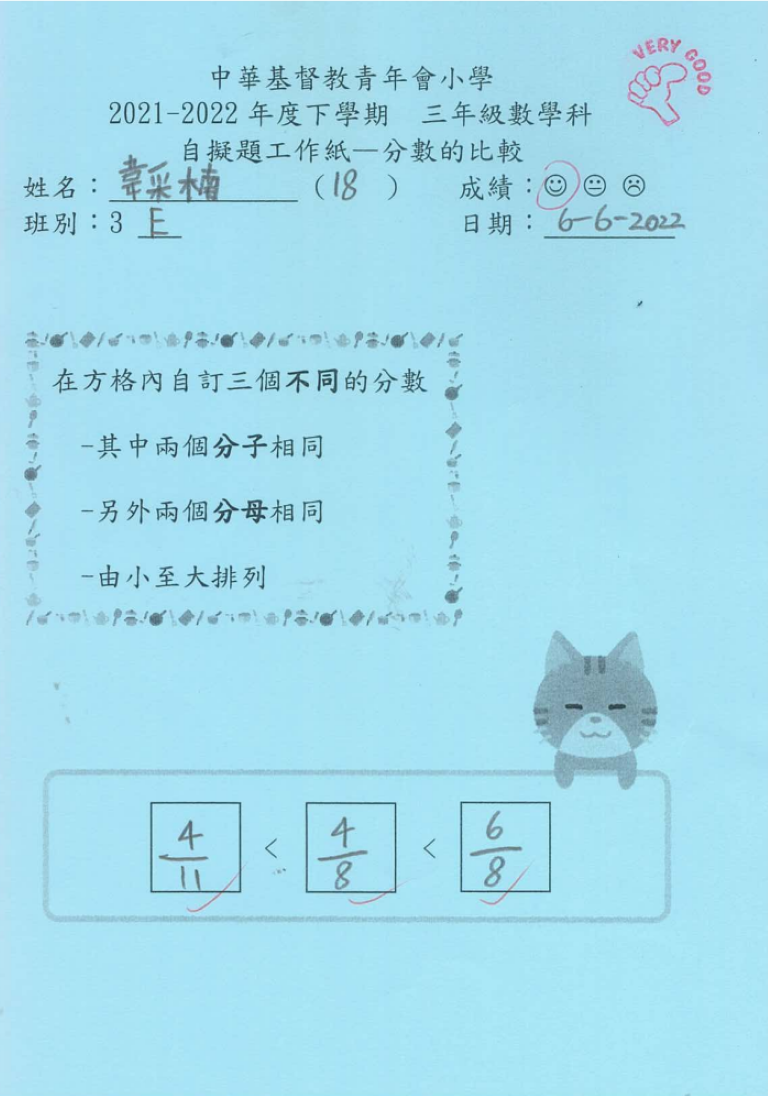 VERY GOOD
中華基督教青年會小學
2021-2022 年度下學期 三年級數學科
自擬題工作紙—分數的比較
姓名：韋采楠 (18) 成績：☺ 😐 ☹
班別：3 E 日期：6-6-2022
在方格內自訂三個不同的分數
-其中兩個分子相同
-另外兩個分母相同
-由小至大排列
4/11 < 4/8 < 6/8